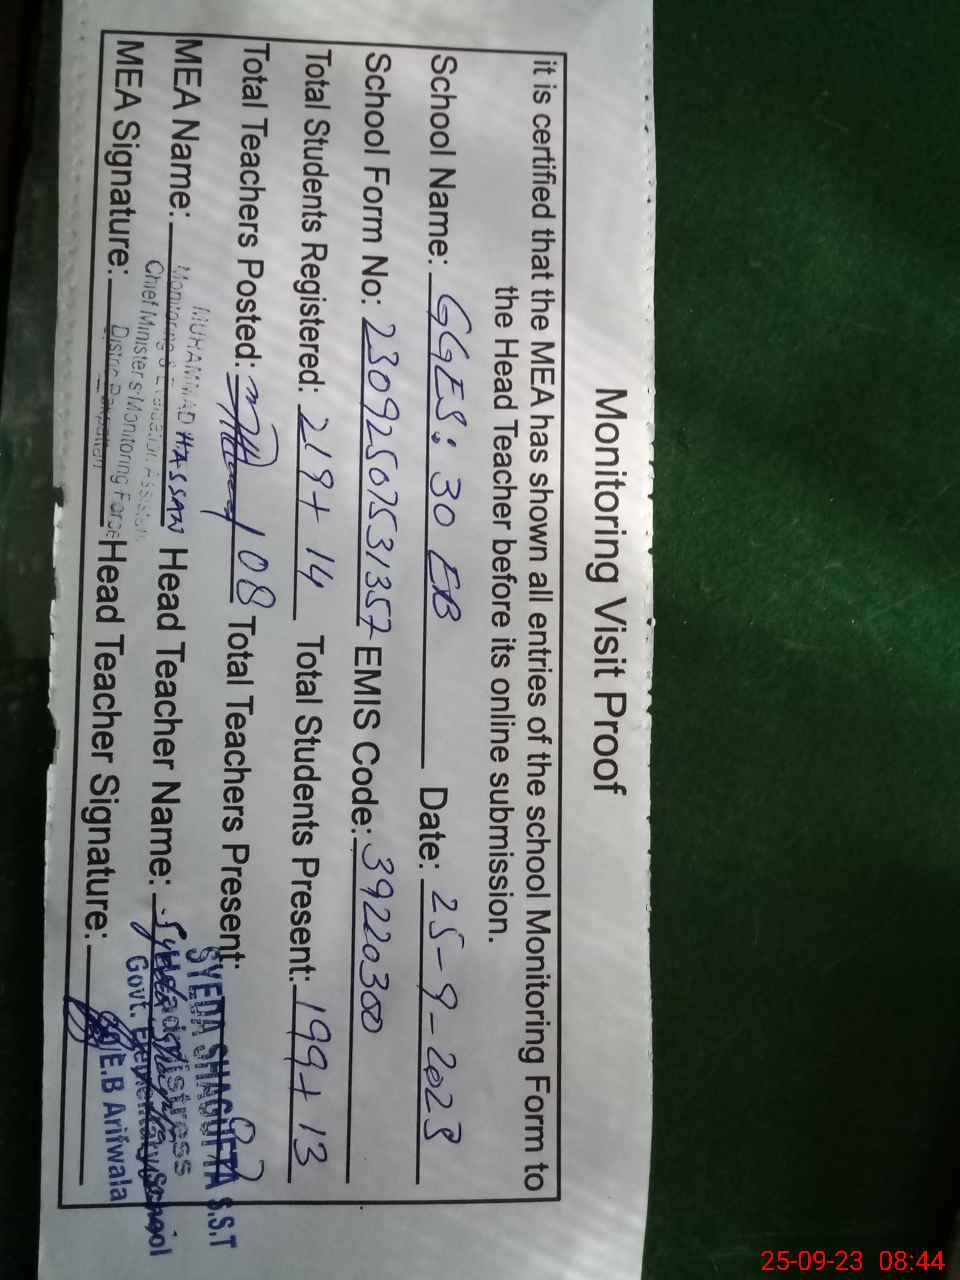 Monitoring Visit Proof
it is certified that the MEA has shown all entries of the school Monitoring Form to
the Head Teacher before its online submission.
School Name: GGES: 30 EB Date: 25-9-2023
School Form No: 23092507531357 EMIS Code: 39220300
Total Students Registered: 219+14 Total Students Present: 199+13
Total Teachers Posted: 08 Total Teachers Present:
MEA Name: Head Teacher Name:
MUHAMMAD HASSAN
Monitoring & Evaluation Assistant
Chief Minister's Monitoring Force
District Pakpattan
SYEDA SHAGUFTA S.S.T
Headmistress
Govt. Elementary School
30/E.B Arifwala
MEA Signature: Head Teacher Signature:
25-09-23 08:44